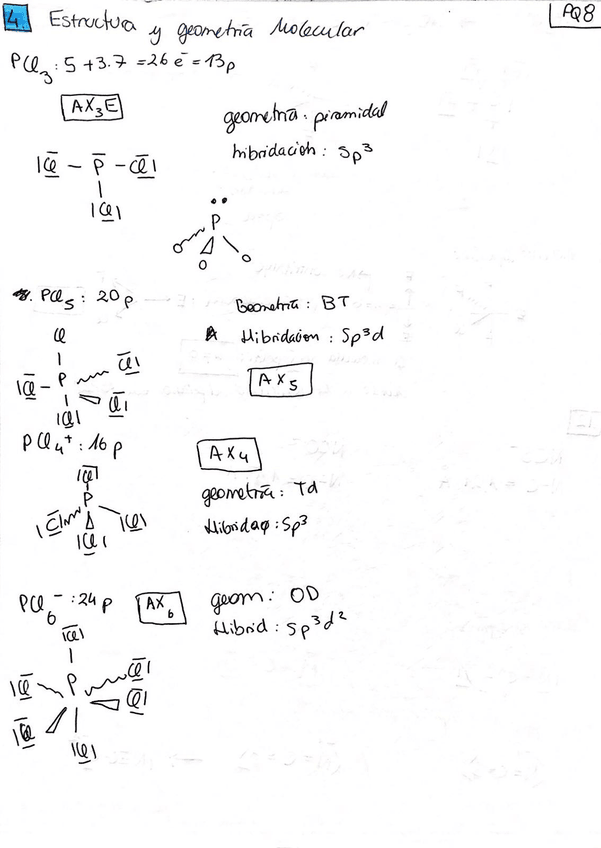 4. Estructura y geometría Molecular
AQ8
PCl3: 5 + 3·7 = 26 e⁻ = 13p
AX3E
geometría: piramidal
hibridación: Sp³
|Cl – P – Cl|
|Cl|
P
PCl5: 20p
Geometría: BT
Hibridacion: Sp³d
AX5
Cl
Cl|
|Cl – P
|Cl| Cl|
PCl4⁺: 16p
AX4
geometría: Td
Hibridaç: Sp³
|Cl|
P
|Cl |Cl|
|Cl|
PCl6⁻: 24p
AX6
geom: OD
Hibrid: Sp³d²
|Cl|
|Cl P Cl|
|Cl Cl|
|Cl|